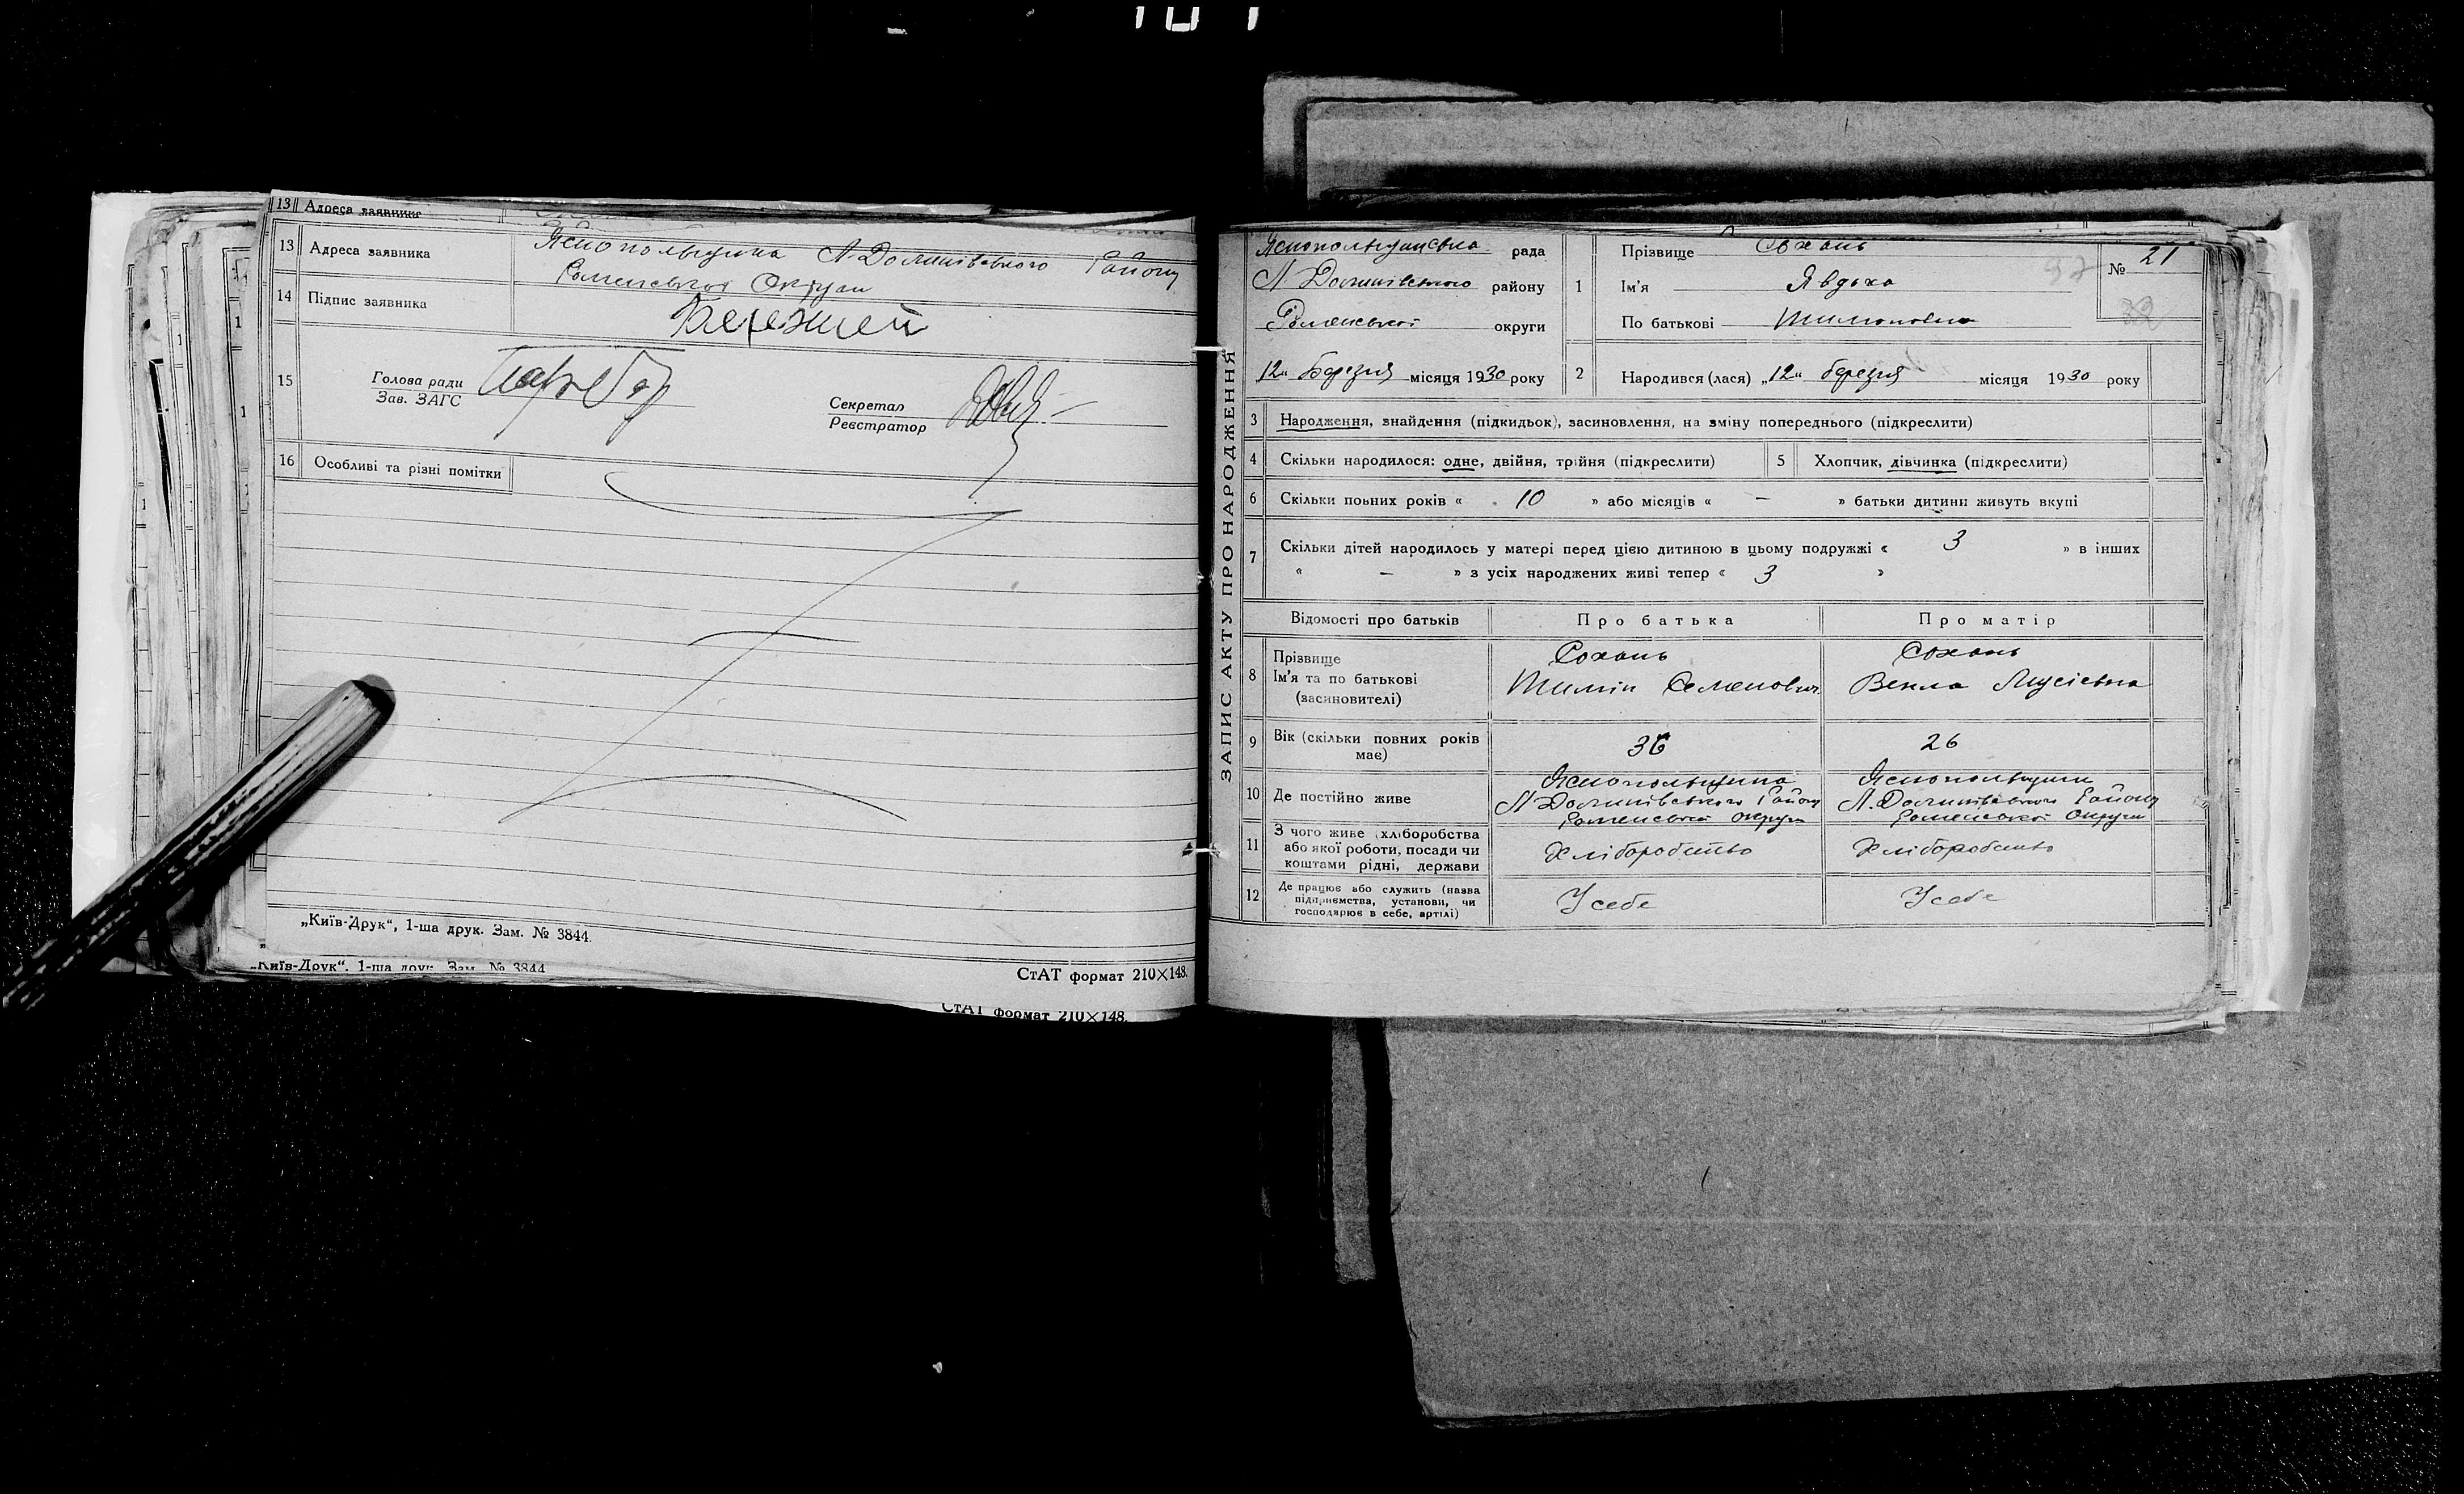 13 Адреса заявника
13 Адреса заявника Яснопольщина Л-Долинівського Району
Роменської Округи
14 Підпис заявника
15 Голова ради
Зав. ЗАГС
Секретар
Реєстратор
16 Особливі та різні помітки
„Київ-Друк“, 1-ша друк. Зам. № 3844.
СтАТ формат 210×148.
„Київ-Друк“, 1-ша друк. Зам. № 3844
СтАТ формат 210×148.
ЗАПИС АКТУ ПРО НАРОДЖЕННЯ
Яснопольщинська рада
Л-Долинівського району
Роменської округи
12“ Березня місяця 1930 року
1 Прізвище Сохань
Ім'я Явдоха
По батькові Тимоновна
№ 21
2 Народився (лася) „12“ березня місяця 1930 року
3 Народження, знайдення (підкидьок), засиновлення, на зміну попереднього (підкреслити)
4 Скільки народилося: одне, двійня, трійня (підкреслити) 5 Хлопчик, дівчинка (підкреслити)
6 Скільки повних років « 10 » або місяців « — » батьки дитини живуть вкупі
7 Скільки дітей народилось у матері перед цією дитиною в цьому подружжі « 3 » в інших
« — » з усіх народжених живі тепер « 3 »
Відомості про батьків Про батька Про матір
8 Прізвище Сохань Сохань
Ім'я та по батькові Тимін Семенович Векла Мусієвна
(засиновителі)
9 Вік (скільки повних років має) 36 26
10 Де постійно живе Яснопольщина Яснопольщина
Л-Долинівського Району Л. Долинівського Району
Роменської округи Роменської Округи
11 З чого живе (хліборобства
або якої роботи, посади чи
коштами рідні, держави Хліборобство Хліборобство
12 Де працює або служить (назва
підприємства, установи, чи
господарює в себе, артілі) У себе У себе